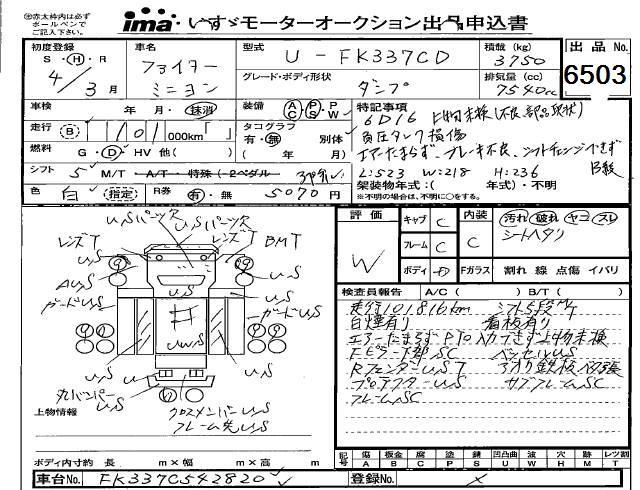 ㊟赤太枠内は必ず
ボールペンで
ご記入下さい。
ima いすゞモーターオークション出品申込書
初度登録
S・H・R
4/3月
車名
ファイター
ミニヨン
型式
U-FK337CD
グレード・ボディ形状
ダンプ
積載 (kg)
3750
排気量 (cc)
7540cc
出品No.
6503
車検
年・月・抹消
走行 B 101 000km
燃料 G・D・HV 他( )
シフト 5 M/T A/T・特殊(・2ペダル
色 白 (指定)
R券 有・無 5070円
装備 AC PS PW
タコグラフ
有・無 別体
( 年 / 月)
特記事項
6D16 上物未検(不良部品現状)
負圧タンク損傷
エアーたまらず、ブレーキ不良、シフトチェンジできず
L:523 W:218 H:236
架装物年式:( 年式)・不明
※不明の場合は、不明に○をする。
uSパーツ欠 uSパーツ欠
レンズT レンズT BMT
uS
ガードuS ガードuS
uS
uS
丸バンパー
uS
クロスメンバーuS
フレーム先uS
上物情報
ボディ内寸約 長 m×幅 m×高 m
評価
W
キャブ C
フレーム C
ボディ D
内装
C
汚れ 破れ ヤニ スレ
シートヘタリ
Fガラス 割れ 線 点傷 イバリ
検査員報告 A/C( ) B/T( )
走行101,816km シフト5段M/T
白煙有り 看板有り
エアーたまらずPTO入力できず上物未検
Fピラー下部SC ベッセルuS
RフェンダーuST アオリ鉄板ベタ張
プロテクターuS サブフレームSC
フレームSC
記号 傷A 板金B 腐C 塗P 錆S 凹凸曲U 波W 穴H 跡M レツ割T
車台No. FK337C542820
登録No. ×